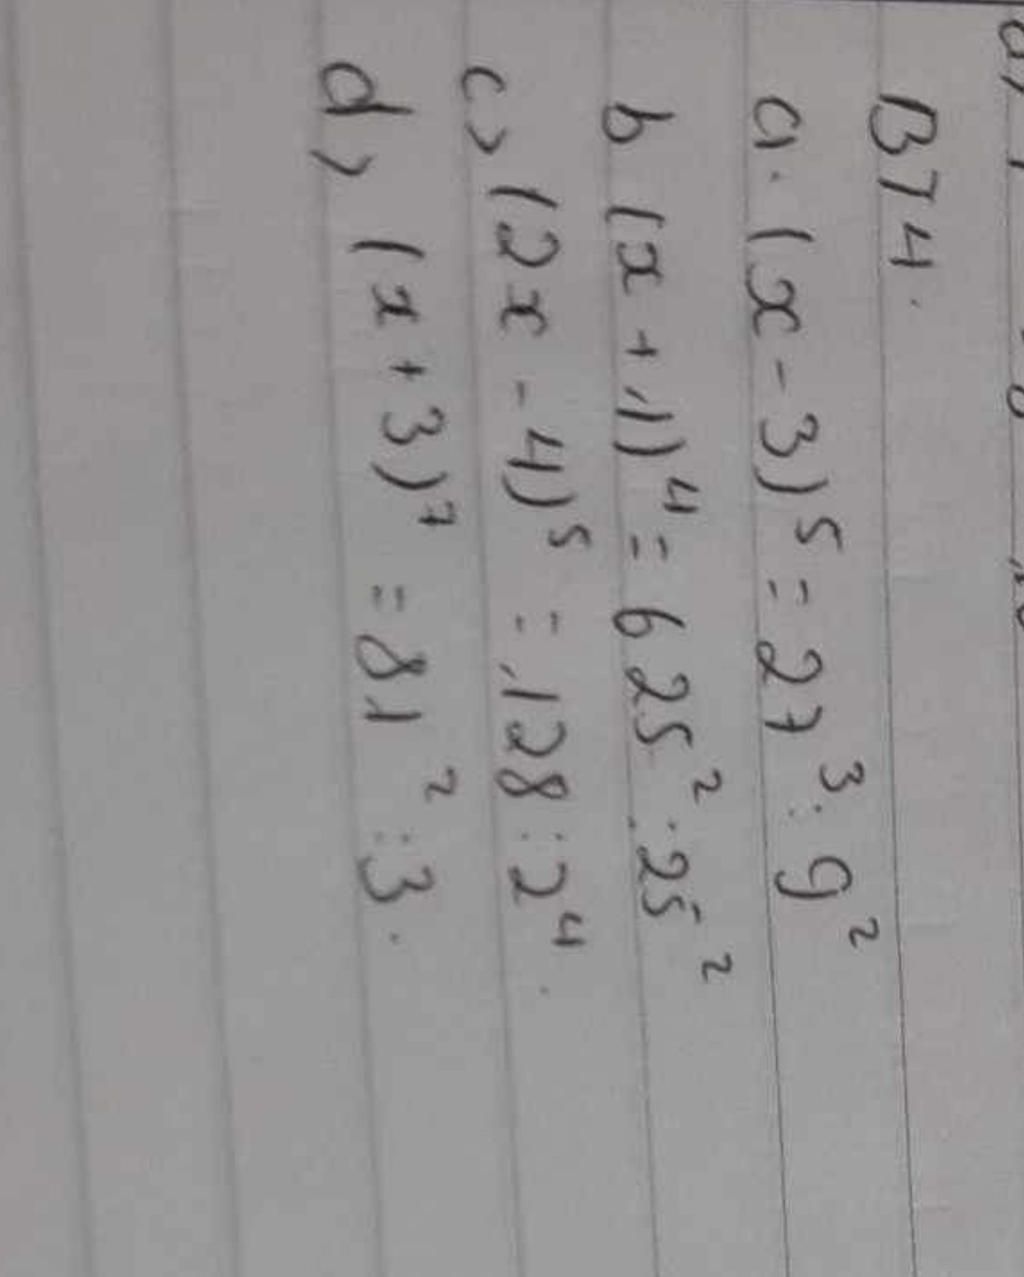 BT4.
a. (x - 3)⁵ = 27³ : 9²
b (x + 1)⁴ = 625² : 25²
c) (2x - 4)⁵ = 128 : 2⁴.
d) (x + 3)⁷ = 81² : 3.